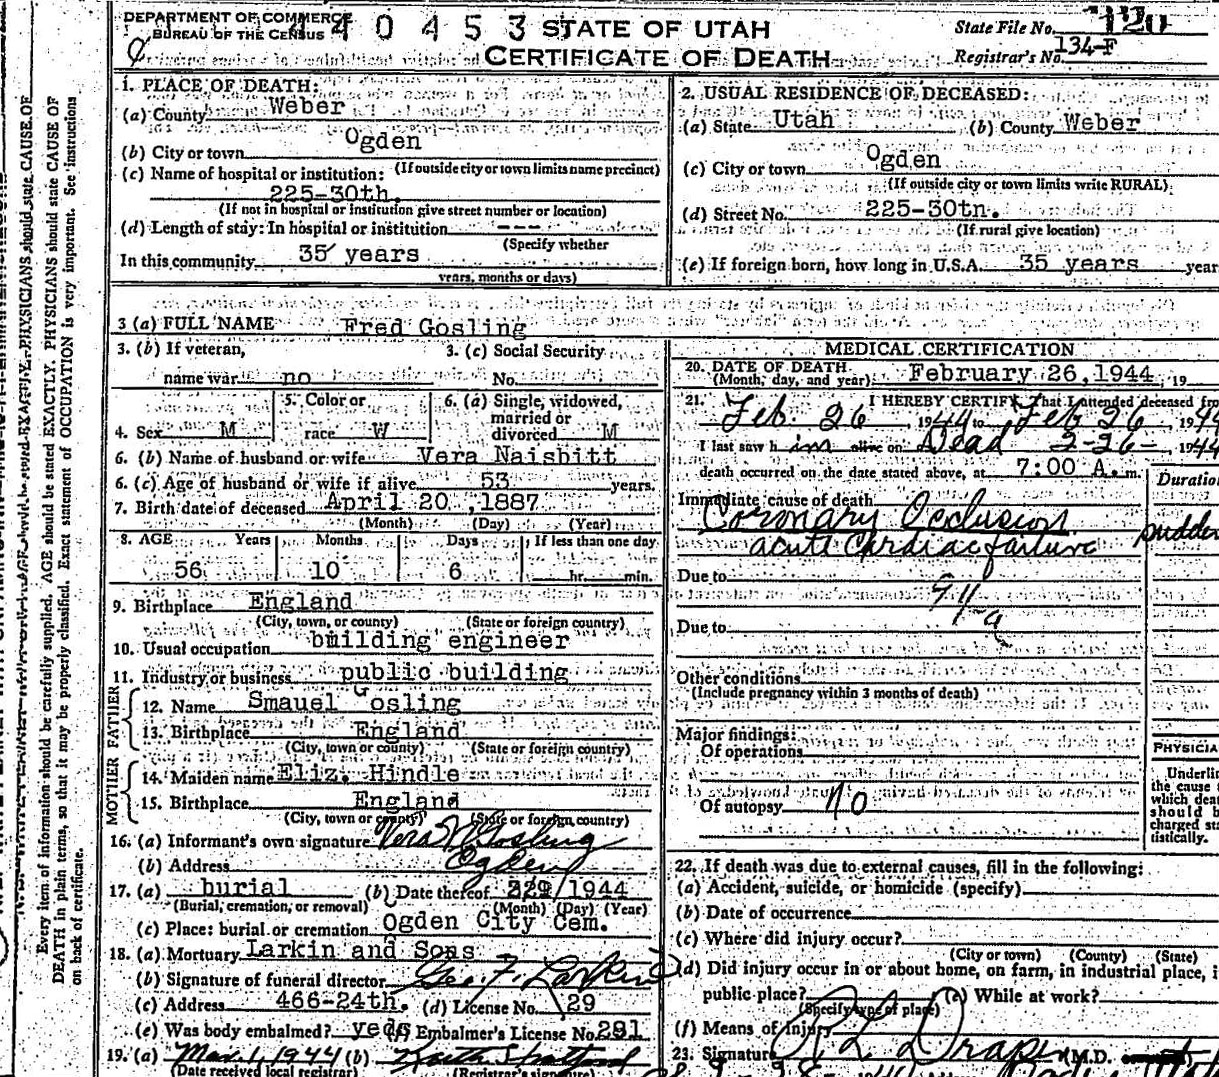 DEPARTMENT OF COMMERCE
BUREAU OF THE CENSUS
4 0 4 5 3
STATE OF UTAH
CERTIFICATE OF DEATH
State File No. 120
Registrar's No. 134-F
1. PLACE OF DEATH:
(a) County Weber
(b) City or town Ogden
(If outside city or town limits name precinct)
(c) Name of hospital or institution:
225-30th.
(If not in hospital or institution give street number or location)
(d) Length of stay: In hospital or institution ---
(Specify whether
In this community 35 years
years, months or days)
2. USUAL RESIDENCE OF DECEASED:
(a) State Utah (b) County Weber
(c) City or town Ogden
(If outside city or town limits write RURAL)
(d) Street No. 225-30tn.
(If rural give location)
(e) If foreign born, how long in U.S.A. 35 years year
3 (a) FULL NAME Fred Gosling
3. (b) If veteran, name war no
3. (c) Social Security No.
4. Sex M
5. Color or race W
6. (a) Single, widowed, married or divorced M
6. (b) Name of husband or wife Vera Naisbitt
6. (c) Age of husband or wife if alive 53 years.
7. Birth date of deceased April 20 ,1887
(Month) (Day) (Year)
8. AGE Years Months Days If less than one day
56 10 6 hr. min.
9. Birthplace England
(City, town, or county) (State or foreign country)
10. Usual occupation building engineer
11. Industry or business public building
FATHER
12. Name Smauel Gosling
13. Birthplace England
(City, town or county) (State or foreign country)
MOTHER
14. Maiden name Eliz. Hindle
15. Birthplace England
(City, town or county) (State or foreign country)
16. (a) Informant's own signature Vera N Gosling
(b) Address Ogden
17. (a) burial (b) Date thereof /1944
(Burial, cremation, or removal) (Month) (Day) (Year)
(c) Place: burial or cremation Ogden City Cem.
18. (a) Mortuary Larkin and Sons
(b) Signature of funeral director Geo. F. Larkin
(c) Address 466-24th. (d) License No. 29
(e) Was body embalmed? Embalmer's License No. 291
19. (a) Mar. 1, 1944 (b)
(Date received local registrar) (Registrar's signature)
MEDICAL CERTIFICATION
20. DATE OF DEATH
(Month, day, and year): February 26,1944, 19
21. I HEREBY CERTIFY, That I attended deceased from
Feb. 26, 1944 to Feb 26, 1944
I last saw h im alive on Dead 2-26-, 1944
death occurred on the date stated above, at 7:00 A. m.
Immediate cause of death
Duration
Coronary Occlusion sudden
acute Cardiac failure
Due to
94-a
Due to
Other conditions
(Include pregnancy within 3 months of death)
Major findings:
Of operations
Of autopsy no
PHYSICIA
Underlin
the cause
which deat
should b
charged sta
tistically.
22. If death was due to external causes, fill in the following:
(a) Accident, suicide, or homicide (specify)
(b) Date of occurrence
(c) Where did injury occur?
(City or town) (County) (State)
(d) Did injury occur in or about home, on farm, in industrial place, i
public place? (e) While at work?
(Specify type of place)
(f) Means of Injury
23. Signature R L Draper M.D.
Every item of information should be carefully supplied. AGE should be stated EXACTLY. PHYSICIANS should state CAUSE OF
DEATH in plain terms, so that it may be properly classified. Exact statement of OCCUPATION is very important. See instructions
on back of certificate.